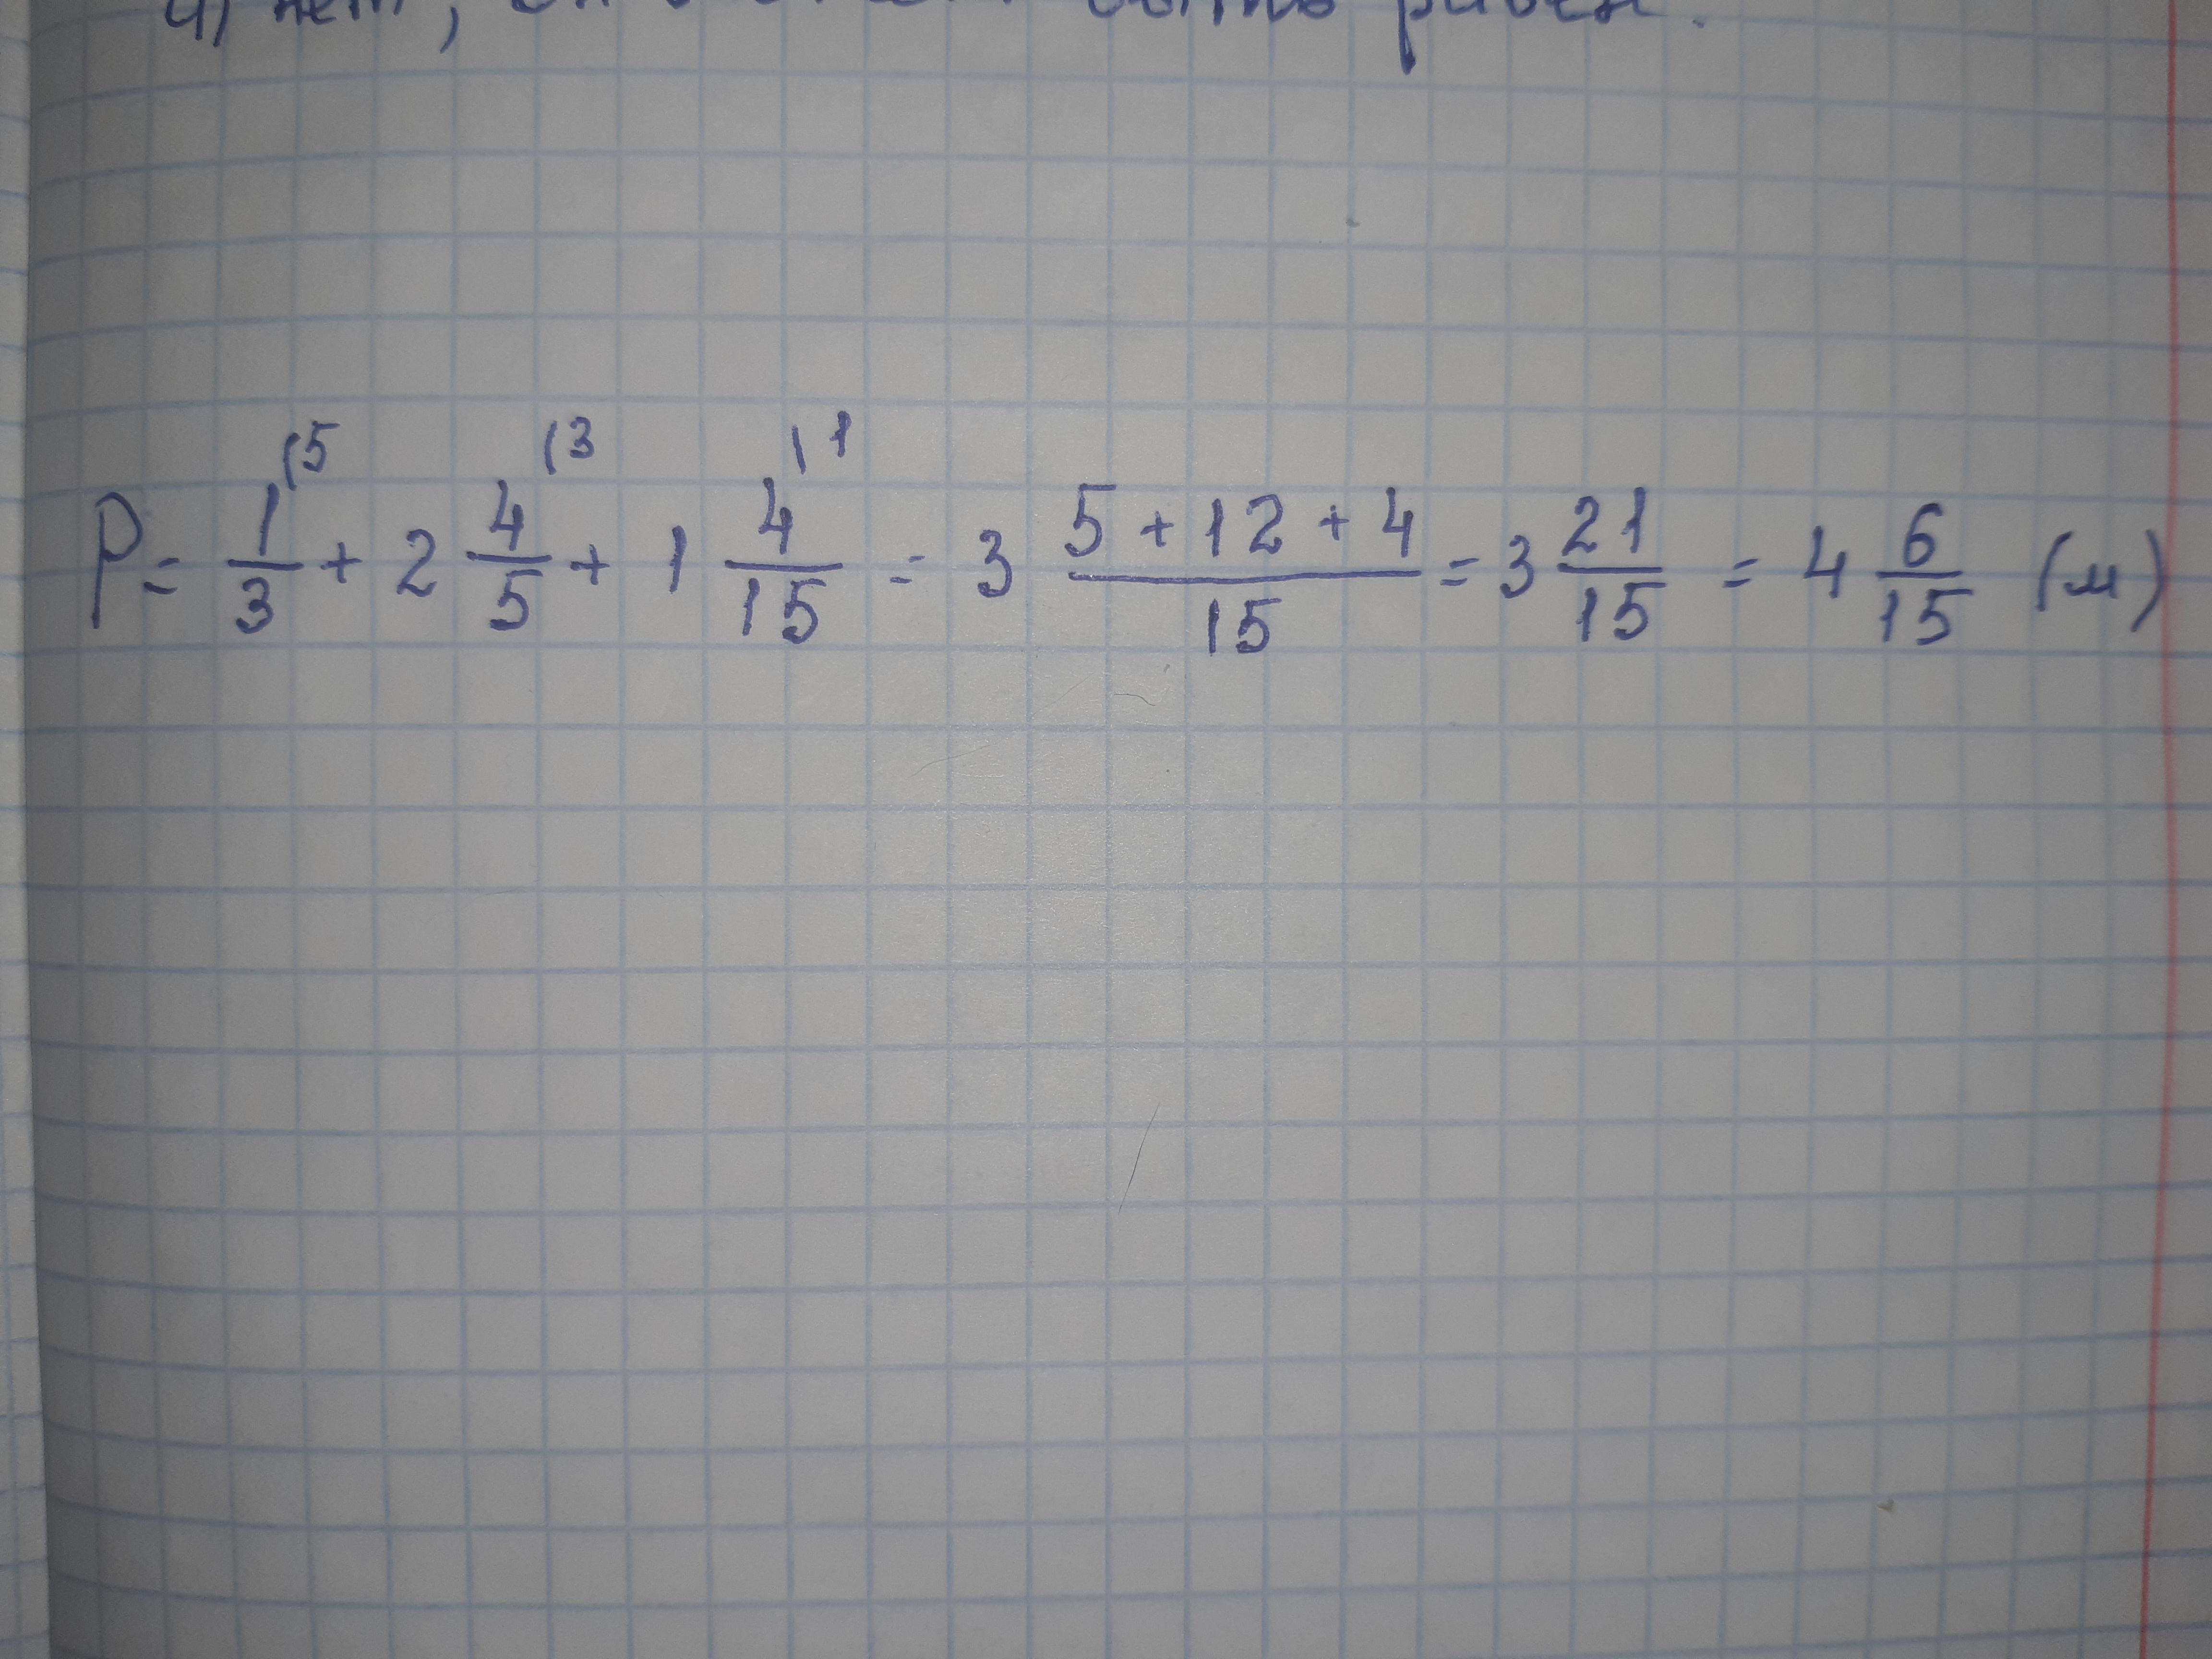 4) нет,
P = 1/3 (5 + 2 4/5 (3 + 1 4/15 (1 = 3 (5 + 12 + 4)/15 = 3 21/15 = 4 6/15 (м)